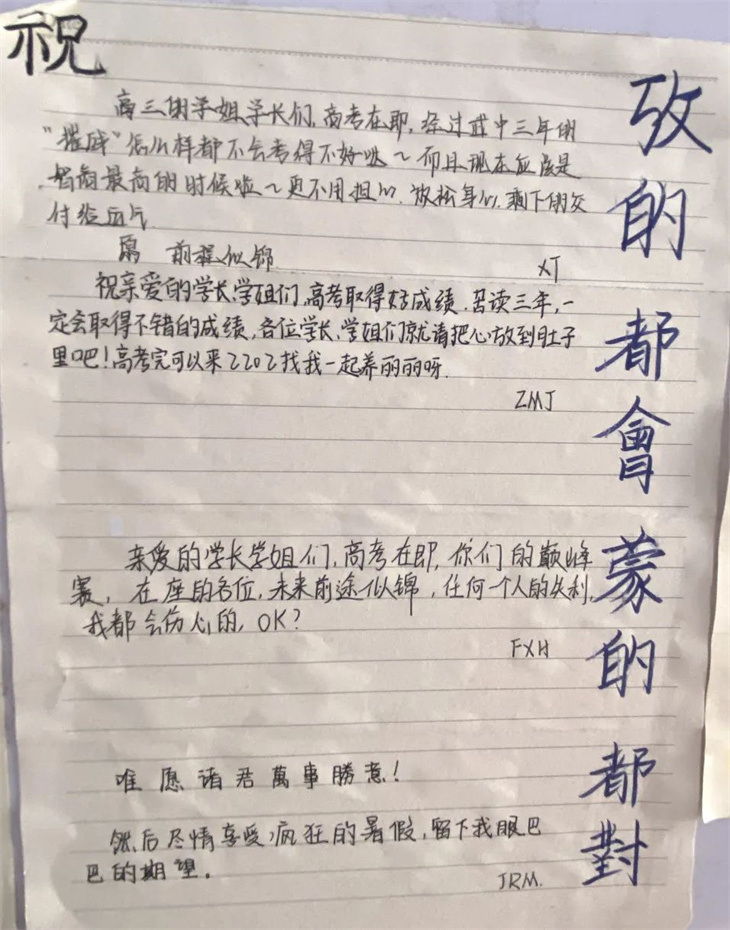 祝
高三的学姐学长们,高考在即,经过武中三年的
"摧残"怎么样都不会考得不好哒~而且现在应该是
智商最高的时候啦~更不用担心.放松身心.剩下的交
付给运气.
愿 前程似锦
XT
祝亲爱的学长、学姐们,高考取得好成绩.苦读三年,一
定会取得不错的成绩,各位学长、学姐们就请把心放到肚子
里吧!高考完可以来2202找我一起养丽丽呀.
ZMJ
亲爱的学长学姐们,高考在即,你们的巅峰
赛,在座的各位,未来前途似锦,任何一个人的失利,
我都会伤心的,OK?
FXH
唯愿诸君萬事勝意!
然后尽情享受疯狂的暑假,留下我眼巴
巴的期望。
JRM.
攷的都會蒙的都對